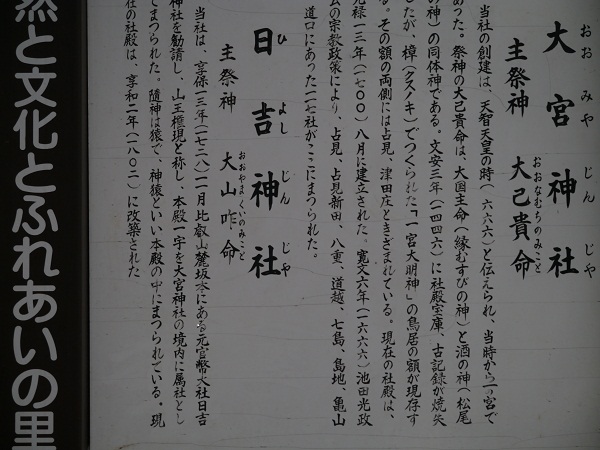 おおみやじんじゃ
大宮神社
おおなむちのみこと
主祭神 大己貴命
当社の創建は、天智天皇の時(六六六)と伝えられ、当時から一宮で
あった。祭神の大己貴命は、大国主命(縁むすびの神)と酒の神(松尾
の神)の同体神である。文安三年(一四四六)に社殿宝庫、古記録が焼失
したが、樟(クスノキ)でつくられた「一宮大明神」の鳥居の額が現存す
る。その額の両側には占見、津田庄ときざまれている。現在の社殿は、
元禄一三年(一七〇〇)八月に建立された。寛文六年(一六六六)池田光政
の宗教政策により、占見、占見新田、八重、道越、七島、島地、亀山
道口にあった一七社がここにまつられた。
ひよしじんじゃ
日吉神社
おおやまくいのみこと
主祭神 大山咋命
当社は、享保一三年(一七二八)二月比叡山麓坂本にある元官幣大社日吉
神社を勧請し、山王権現と称し、本殿一宇を大宮神社の境内に属社とし
てまつられた。随神は猿で、神猿といい本殿の中にまつられている。現
在の社殿は、享和二年(一八〇二)に改築された
然と文化とふれあいの里